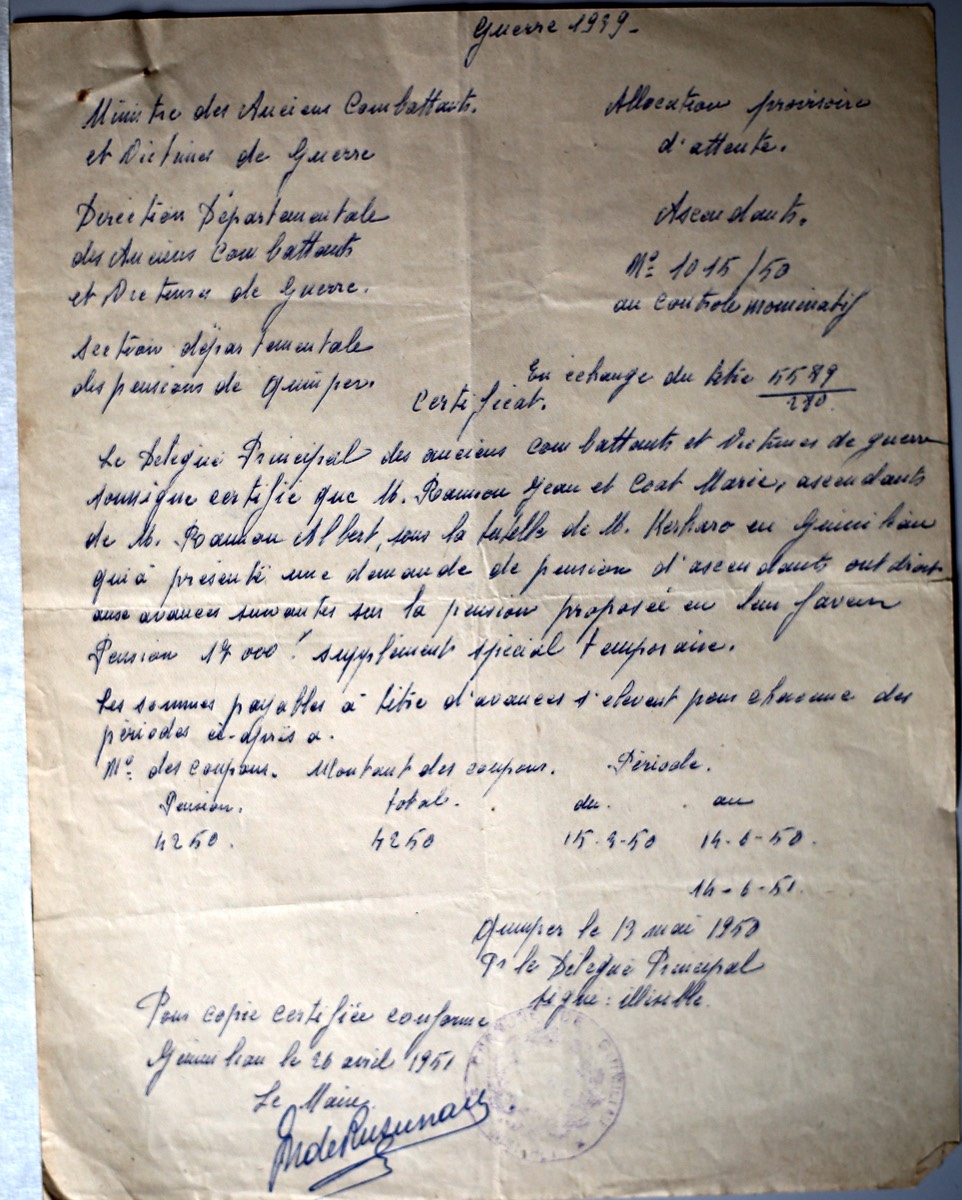 Guerre 1939-
Ministre des Anciens Combattants.
et Victimes de Guerre
Allocation provisoire
d'attente.
Direction Départementale
des Anciens Combattants
et Victimes de Guerre.
Ascendants.
No 1015/50
au controle nominatif
Section départementale
des pensions de Quimper.
En échange du titre 5589
280
Certificat.
Le Délégué Principal des anciens combattants et Victimes de guerre
soussigné certifie que M. Jean et Coat Marie, ascendants
de M. Albert, sous la tutelle de M. Kerharo en
qui à présenté une demande de pension d'ascendants ont droit
aux avances suivantes sur la pension proposée en leur faveur
Pension 17 000f supplément spécial temporaire.
Les sommes payables à titre d'avances s'elevent pour chacune des
périodes ci-après a.
No des coupons. Montant des coupons. Période.
Pension. total. du. au
4250. 4250 15-3-50 14-6-50.
14-6-51.
Quimper le 13 mai 1950
Pr le Délégué Principal
signé: illisible.
Pour copie certifiée conforme
le 26 avril 1951
Le Maire.